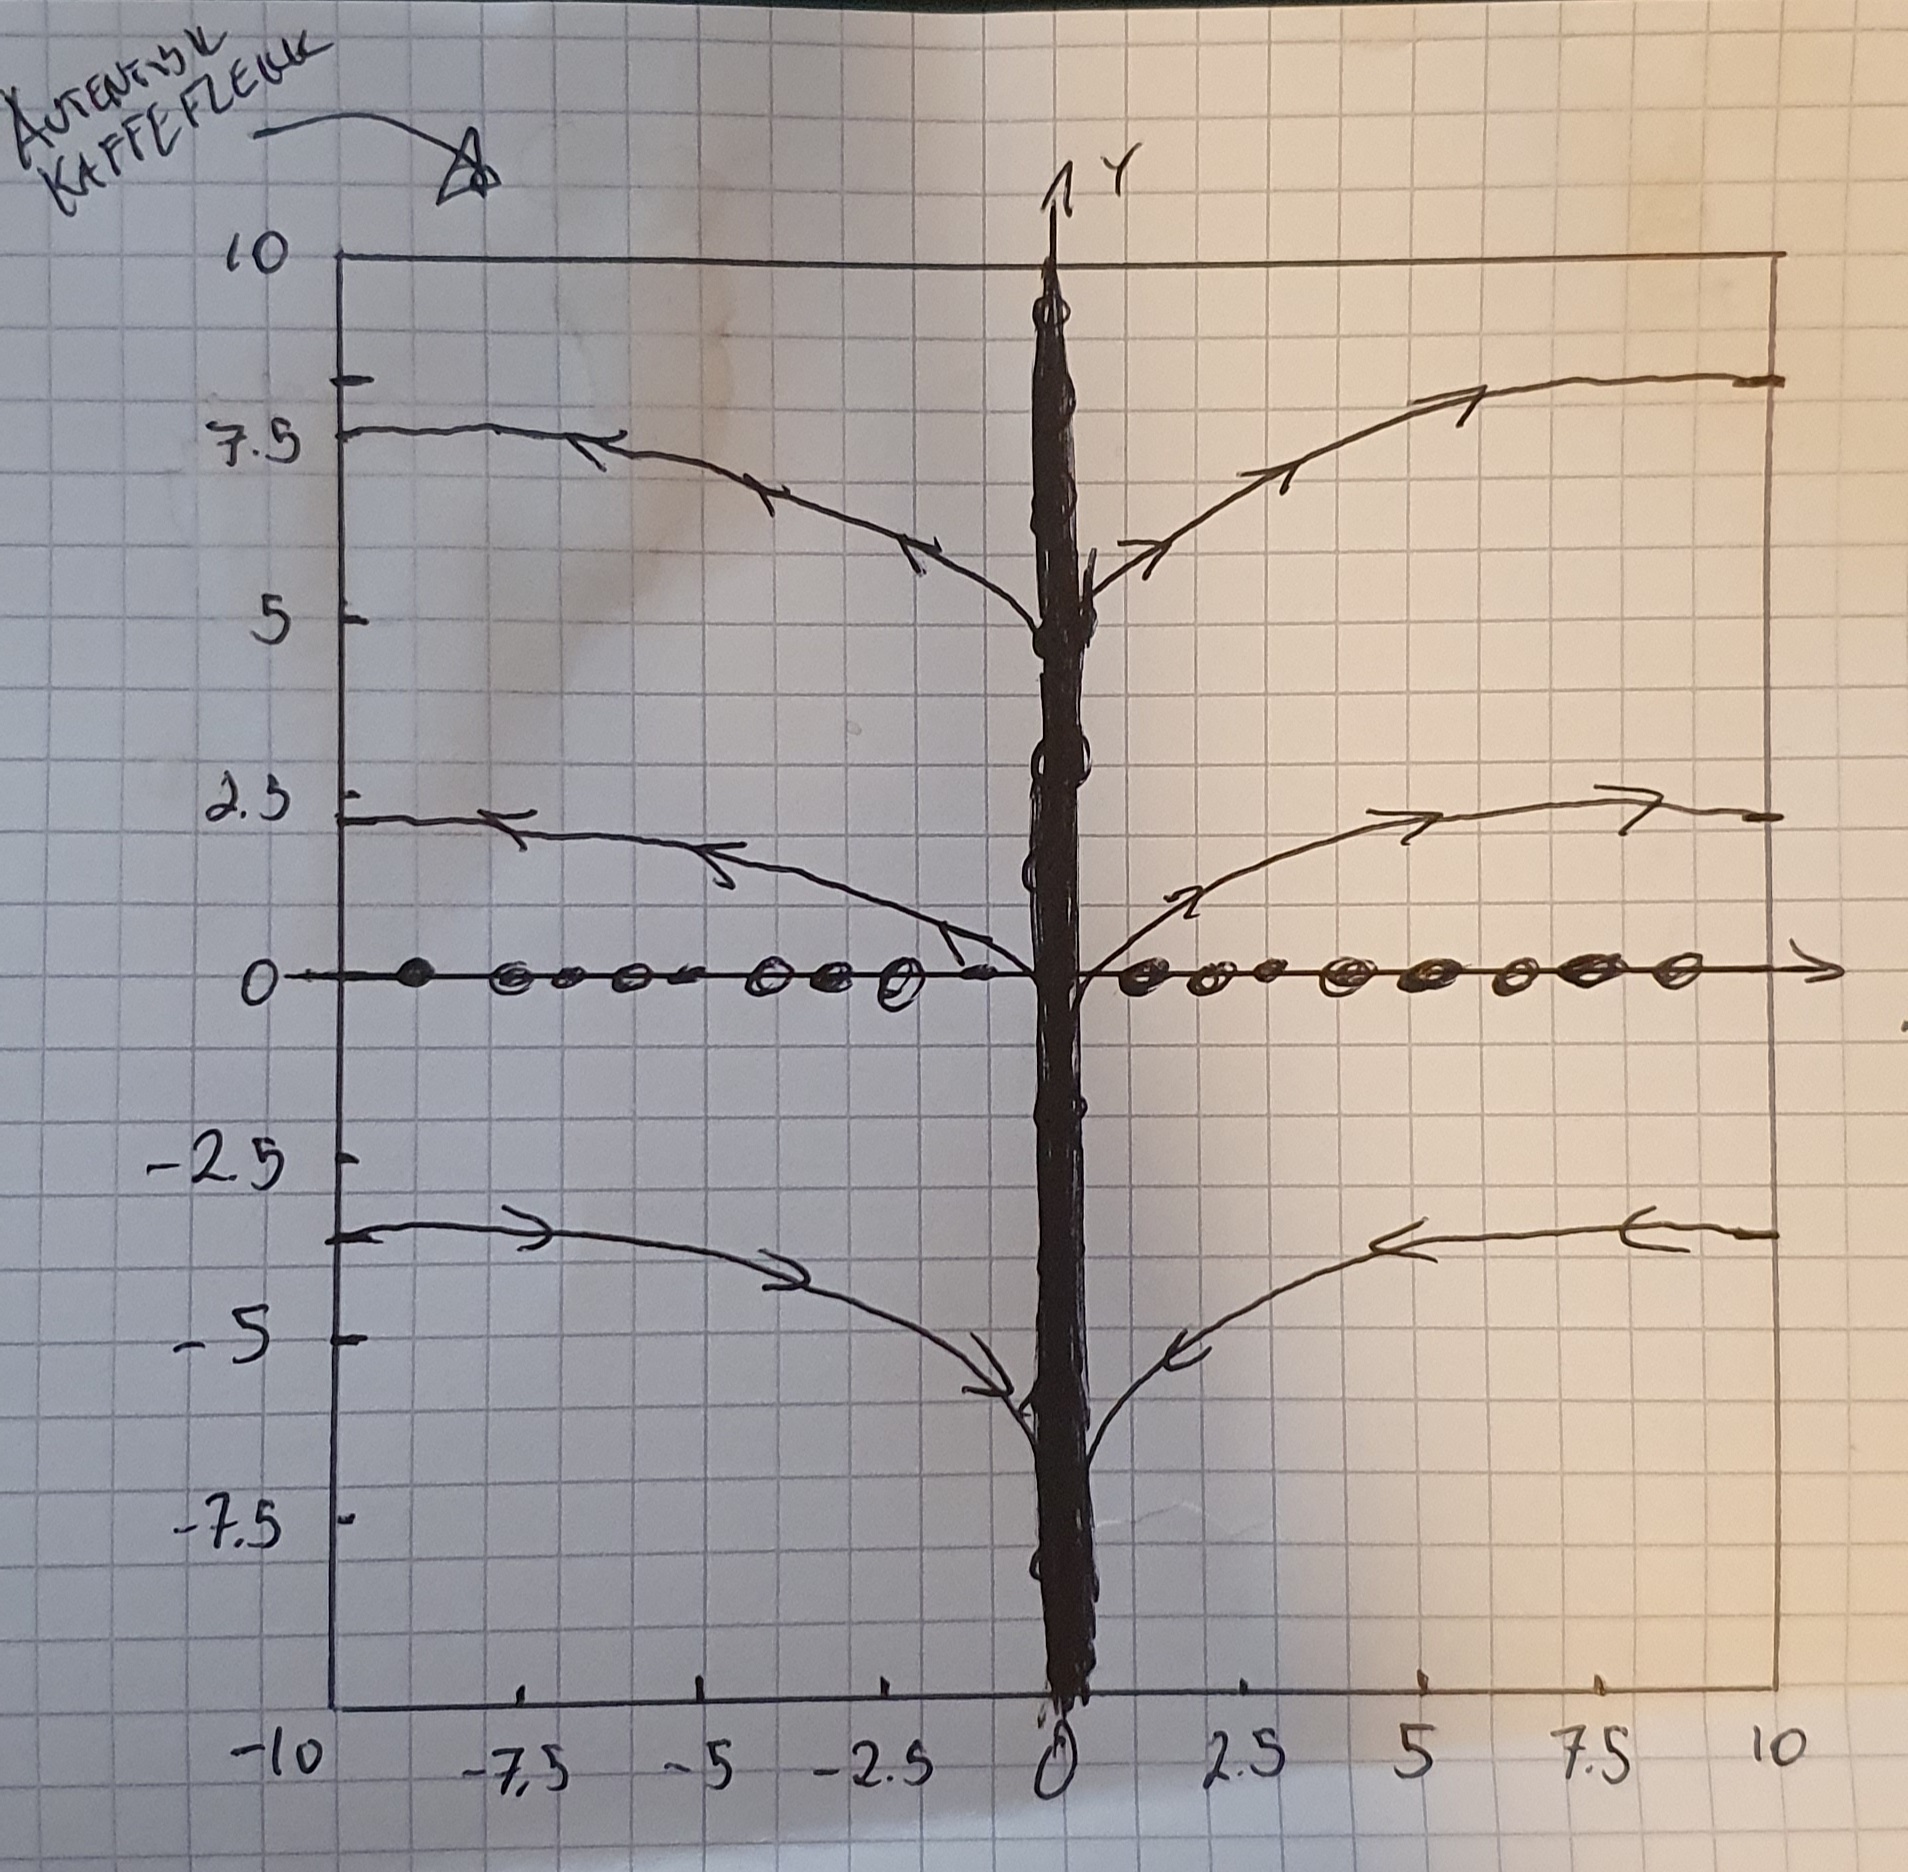 AUTENTISK
KAFFEFLEKK
Y
10
7.5
5
2.5
0
-2.5
-5
-7.5
-10 -7.5 -5 -2.5 0 2.5 5 7.5 10